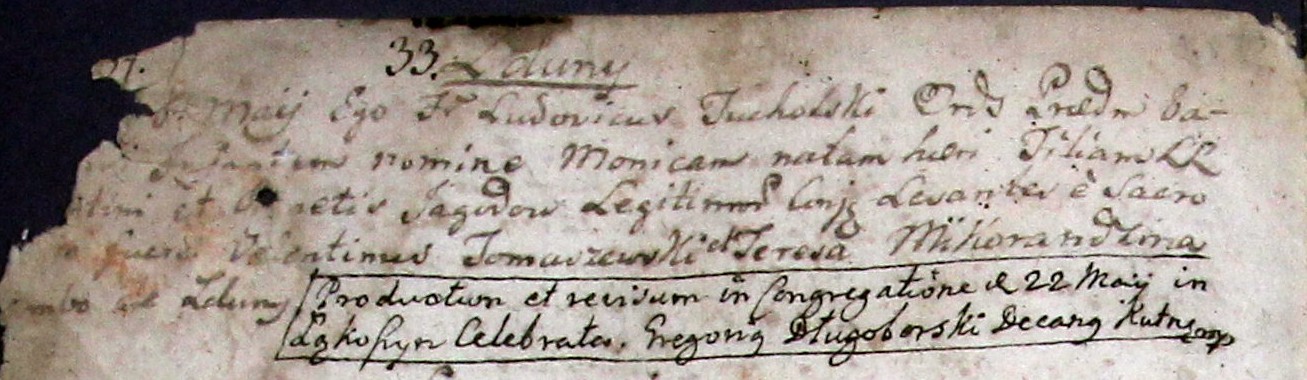 33. Zduny
Maij Ego Fr Ludovicus Tucholski Ords Prædm ba-
nomine Monicam natam heri Filiam LL
et Jagodow Legitimos Conjg Levantes è Sacro
fuerũ Valentinus Tomaszewski et Teresa Mikorandzina
ambo de Zduny Productum et revisum in Congregatione d 22 Maij in
Łąkoszyn Celebrata. Gregorig Długoborski Decang Kutn mp